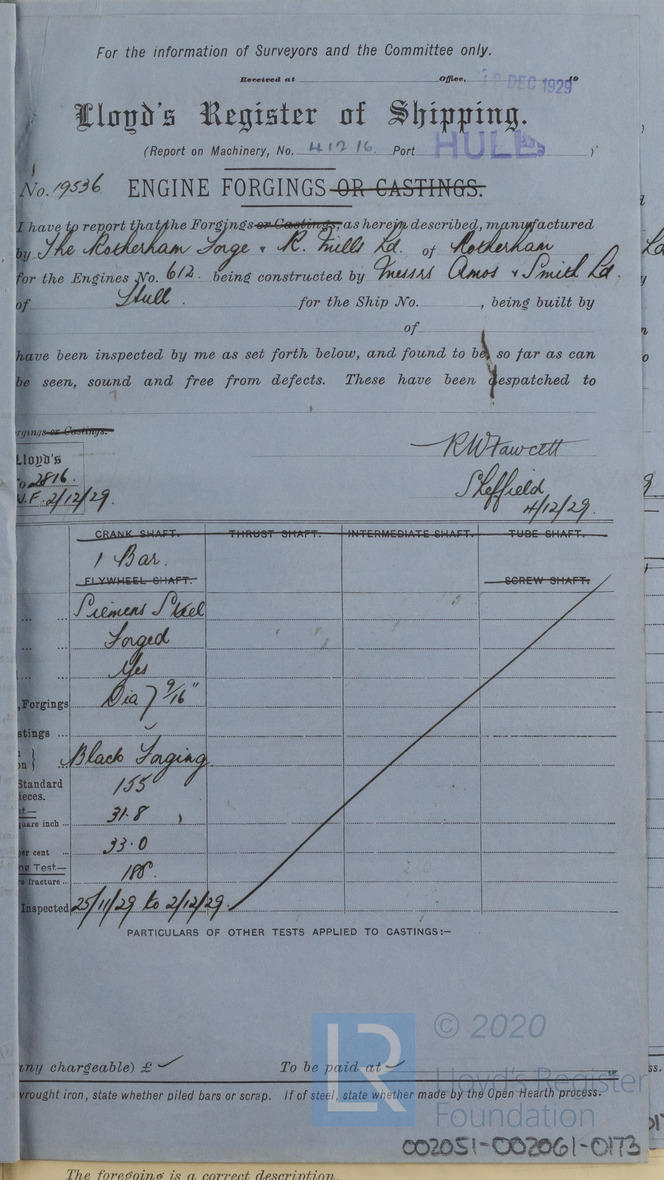 For the information of Surveyors and the Committee only.
Received at Office, DEC 1929 19
Lloyd's Register of Shipping.
(Report on Machinery, No. 41216. Port HULL )
No. 19536 ENGINE FORGINGS OR CASTINGS.
I have to report that the Forgings or Castings, as herein described, manufactured
by The Rotherham Forge & R. Mills Ld. of Rotherham
for the Engines No. 612. being constructed by Messrs Amos & Smith Ld.
of Hull. for the Ship No. , being built by
of
have been inspected by me as set forth below, and found to be, so far as can
be seen, sound and free from defects. These have been despatched to
rgings or Castings.
R W Fawcett
Lloyd's
No 2816.
W.F. 2/12/29.
Sheffield
4/12/29.
CRANK SHAFT. THRUST SHAFT. INTERMEDIATE SHAFT. TUBE SHAFT.
1 Bar.
FLYWHEEL SHAFT. SCREW SHAFT.
... ... Siemens Steel
... ... Forged
... ... Yes
, Forgings Dia 7 9/16"
stings ...
on } ... Black Forging.
Standard
ieces. 155
st—
quare inch ... 31.8
per cent ... 33.0
ng Test—
e fracture .. 180°.
Inspected 25/11/29 to 2/12/29.
PARTICULARS OF OTHER TESTS APPLIED TO CASTINGS:—
© 2020
any chargeable) £ To be paid at
LR
Lloyd's Register
wrought iron, state whether piled bars or scrap. If of steel, state whether made by the Open Hearth process.
Foundation
002051-002061-0173
The foregoing is a correct description.